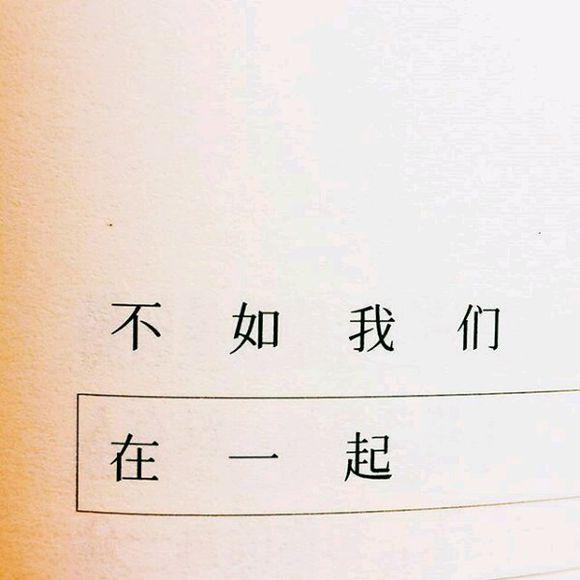 不如我们
在一起